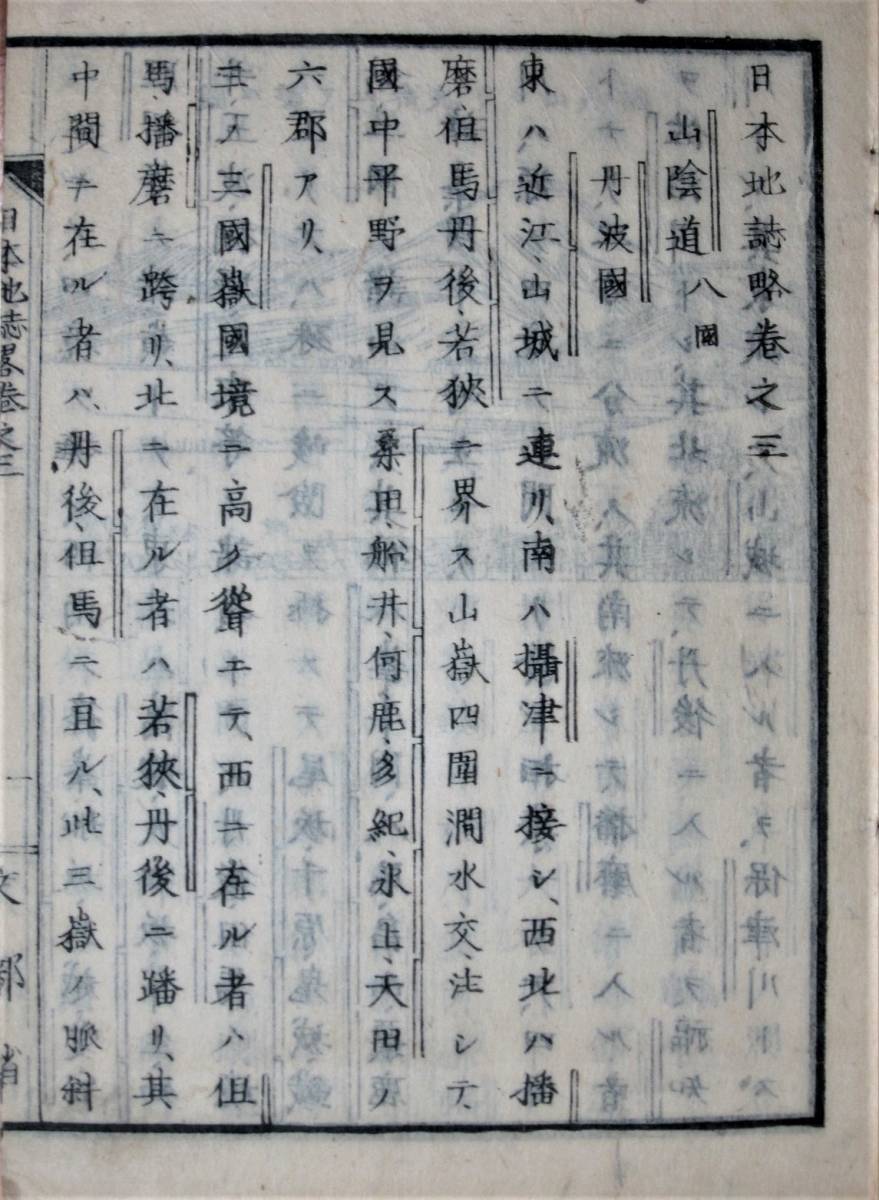 日本地誌略卷之三
山陰道 八國
丹波國
東ハ近江、山城ニ連リ、南ハ攝津ニ接シ、西北ハ播
磨、但馬、丹後、若狹ニ界ス山嶽四圍澗水交、注シテ、
國中平野ヲ見ス桑田、船井、何鹿、多紀、氷上、天田ノ
六郡アリ、
三ノ三國嶽國境ニ高ク聳エテ、西ニ在ル者ハ但
馬、播磨ニ跨リ、北ニ在ル者ハ若狹、丹後ニ蟠リ、其
中間ニ在ル者ハ、丹後、但馬ニ亘ル、此三嶽ノ脈斜
日本地志畧卷之三 一 文部省